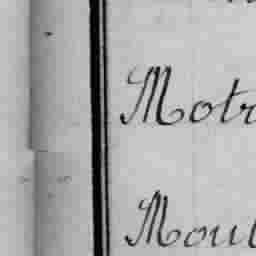 Motr
Moul